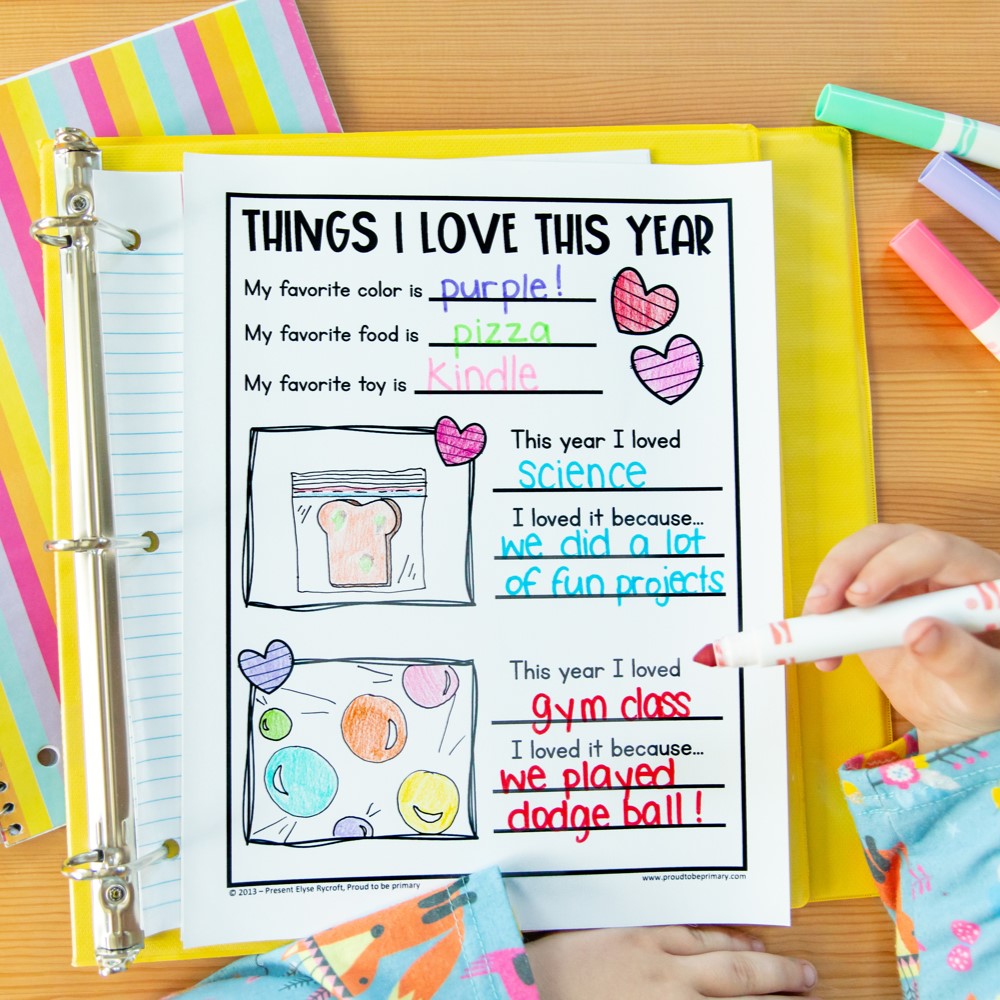 THINGS I LOVE THIS YEAR
My favorite color is purple!
My favorite food is pizza
My favorite toy is Kindle
This year I loved
science
I loved it because...
we did a lot
of fun projects
This year I loved
gym class
I loved it because...
we played
dodge ball!
© 2013 – Present Elyse Rycroft, Proud to be primary
www.proudtobeprimary.com